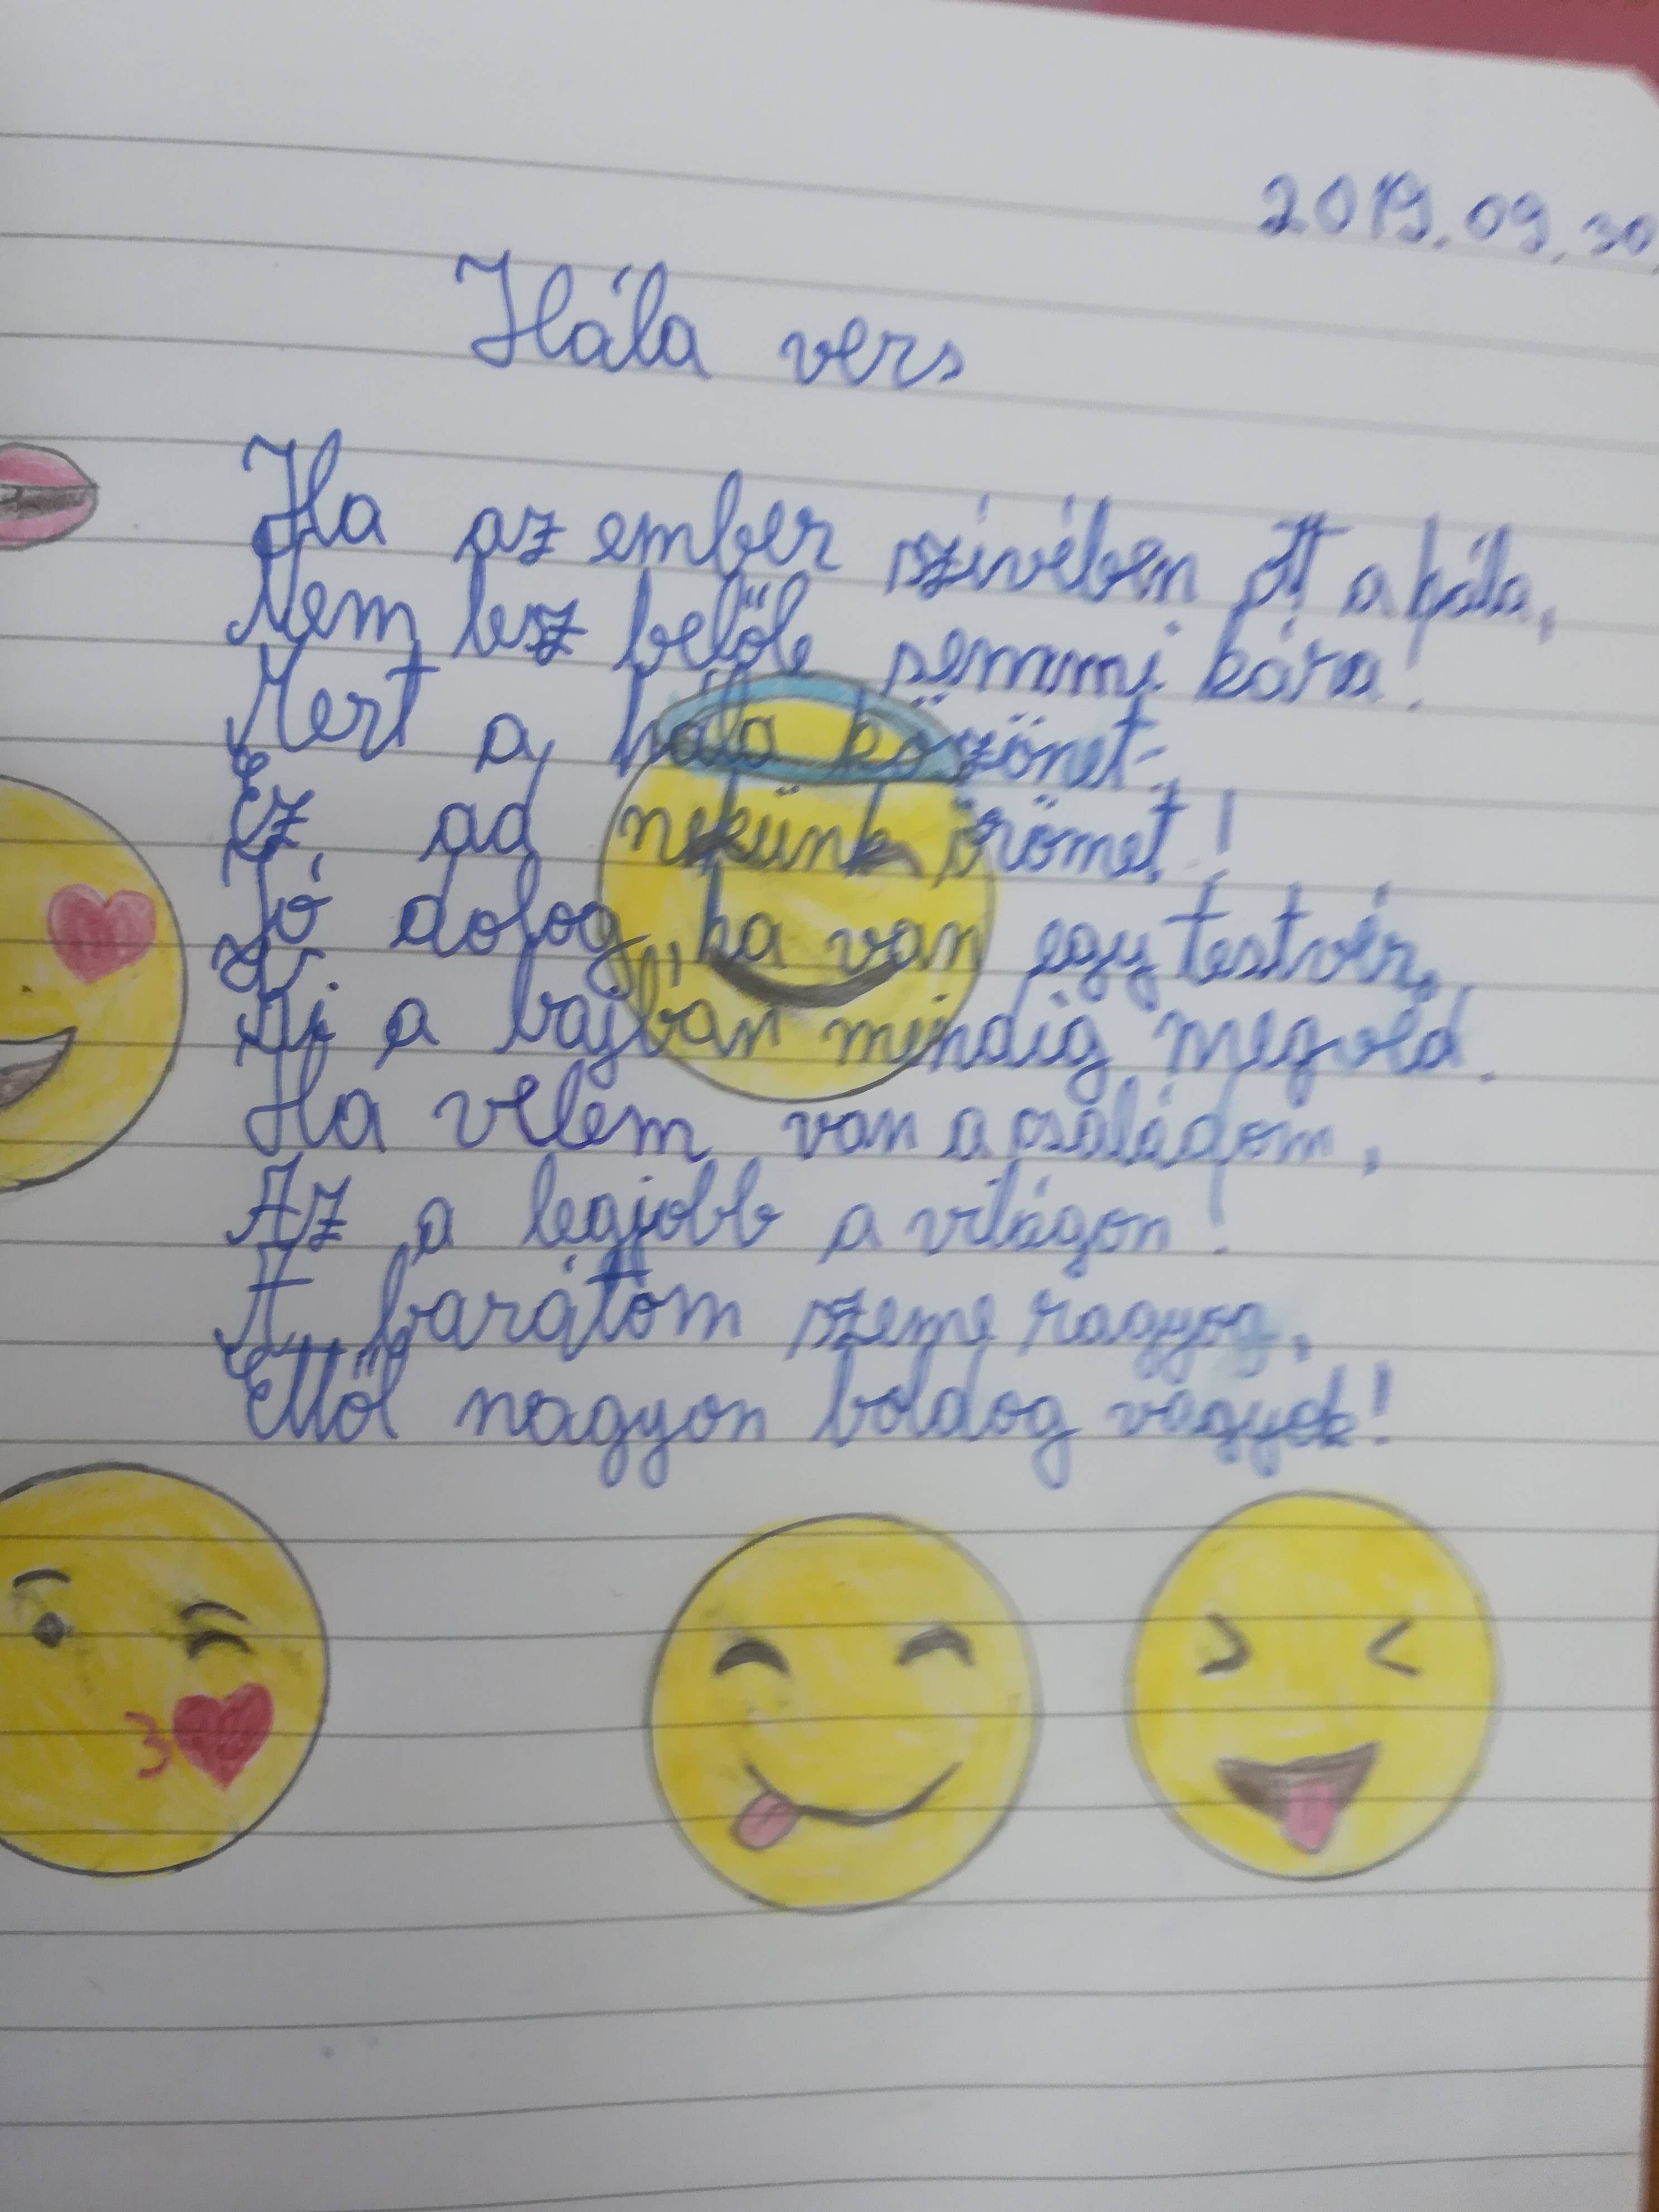 2019.09.30.
Hála vers
Ha az ember szívében ott a hála,
Nem lesz belőle semmi kára!
Mert a hála köszönet,
Ez ad nekünk örömet!
Jó dolog, ha van egy testvér,
Ki a bajban mindig megvéd.
Ha velem van a családom,
Az a legjobb a világon!
A barátom szeme ragyog,
Ettől nagyon boldog vagyok!